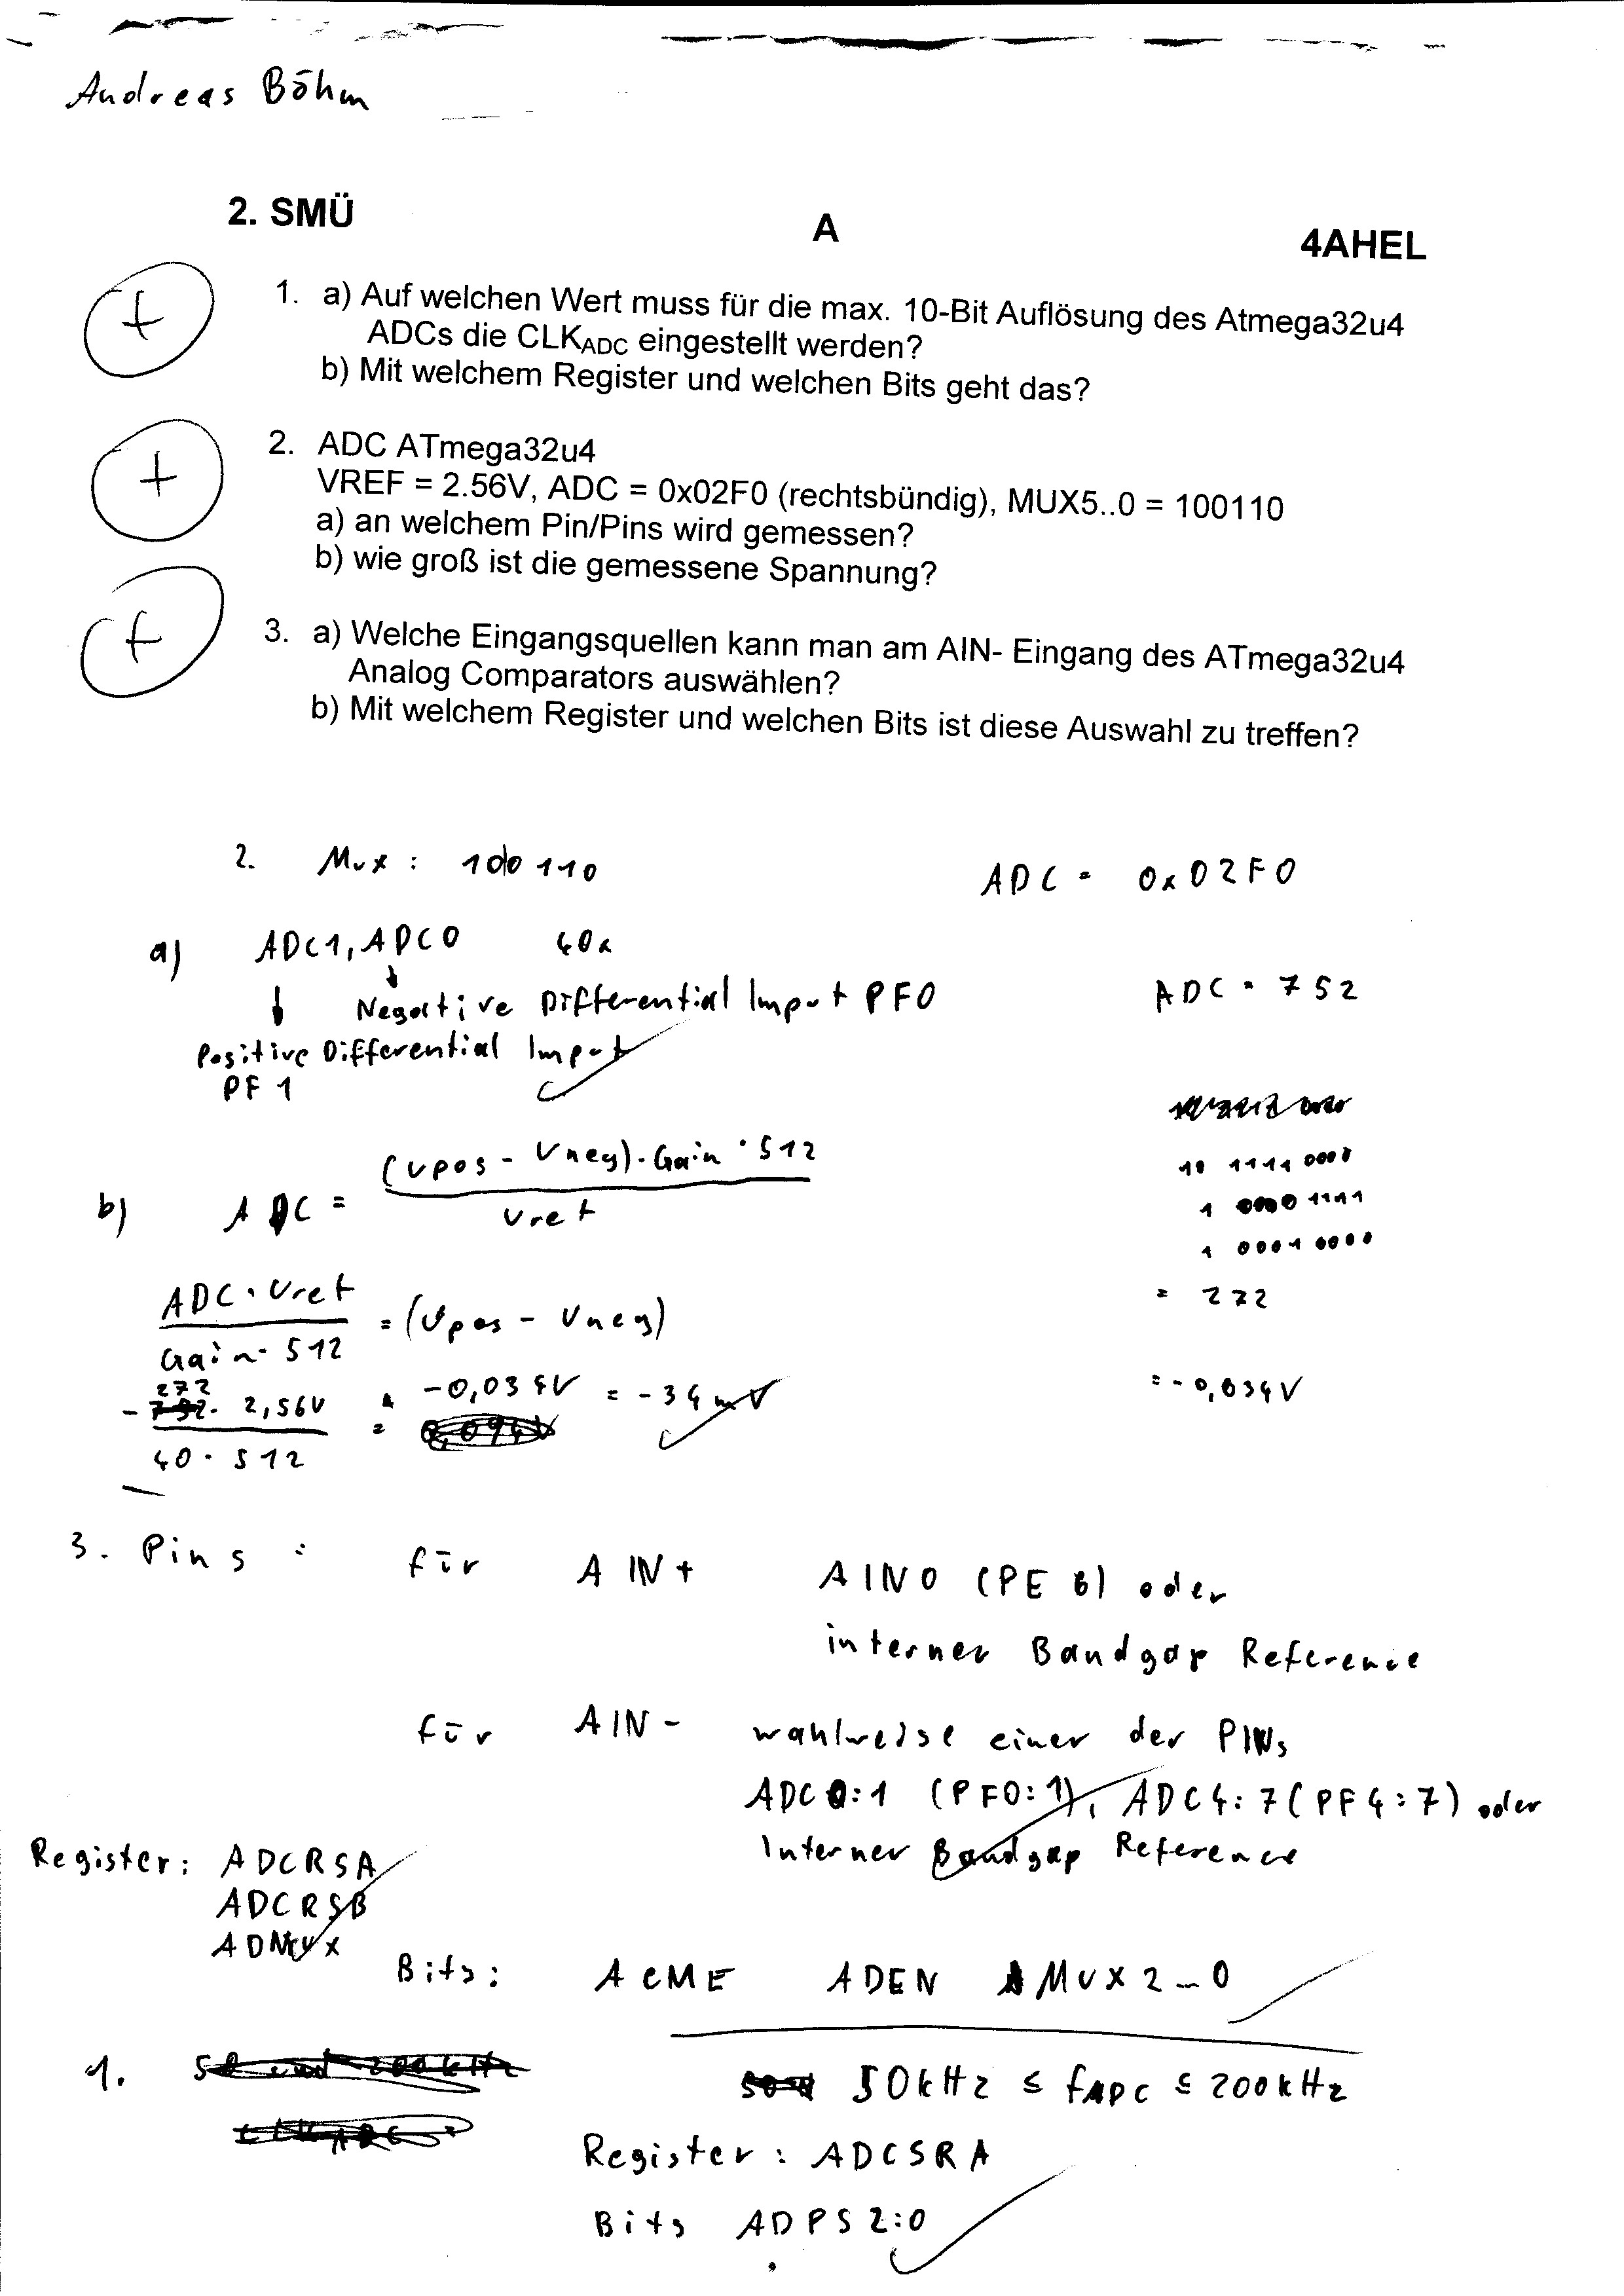 Andreas Böhm
2. SMÜ A 4AHEL
+ 1. a) Auf welchen Wert muss für die max. 10-Bit Auflösung des Atmega32u4
ADCs die CLKADC eingestellt werden?
b) Mit welchem Register und welchen Bits geht das?
+ 2. ADC ATmega32u4
VREF = 2.56V, ADC = 0x02F0 (rechtsbündig), MUX5..0 = 100110
a) an welchem Pin/Pins wird gemessen?
b) wie groß ist die gemessene Spannung?
+ 3. a) Welche Eingangsquellen kann man am AIN- Eingang des ATmega32u4
Analog Comparators auswählen?
b) Mit welchem Register und welchen Bits ist diese Auswahl zu treffen?
2. Mux : 100110 ADC = 0x02F0
a) ADC1, ADC0 40x
↓ ↓ Negative Differential Imput PF0
ADC = 752
Positive Differential Imput
PF 1
10 1111 0000
1 0000 1111
1 0001 0000
= 272
= -0,034V
b) ADC = (Vpos - Vneg) · Gain · 512
Vref
ADC · Vref = (Vpos - Vneg)
Gain · 512
272
- 752 · 2,56V = -0,034V = -34mV
= 0,094V
40 · 512
3. Pins : für AIN+ AIN0 (PE 6) oder
interner Bandgap Reference
für AIN- wahlweise einer der PINs
ADC0:1 (PF0:1), ADC4:7 (PF4:7) oder
Interner Bandgap Reference
Register: ADCRSA
ADCRSB
ADMUX
Bits: ACME ADEN MUX2_0
1. 50 und 200kHz
50kHz ≤ fADC ≤ 200kHz
Register : ADCSRA
Bits ADPS2:0